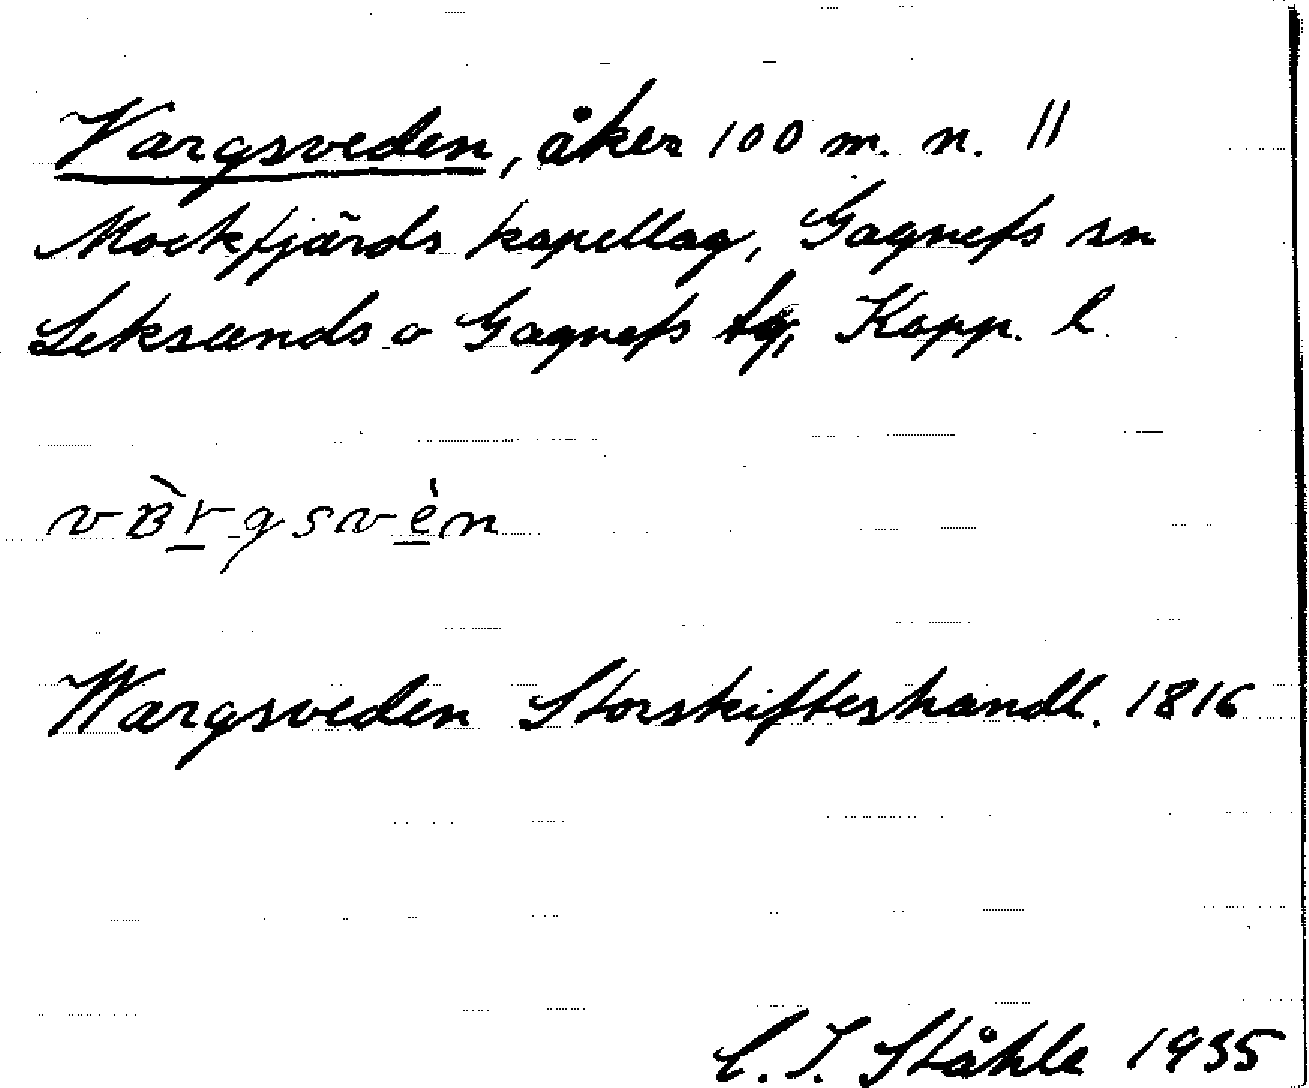 Vargsveden, åker 100 m. n. 11
Mockfjärds kapellag, Gagnefs sn
Leksands o Gagnefs tg, Kopp. l.
vʙ̀rgsvèn
Wargsveden Storskifteshandl. 1816
C. I. Ståhle 1935